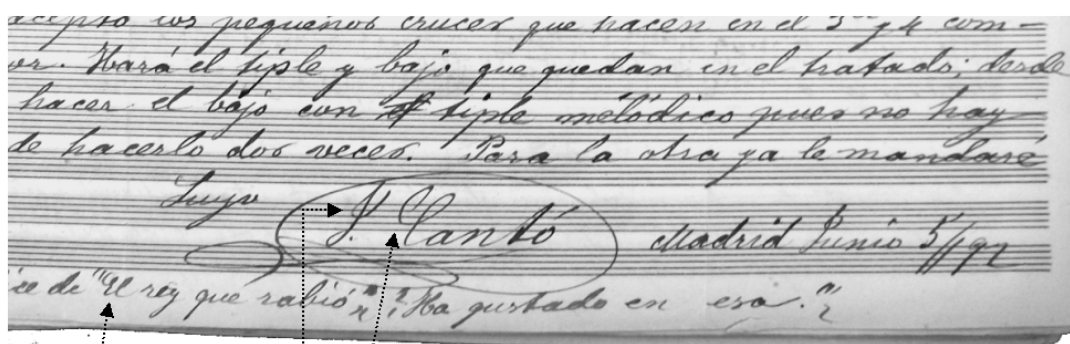 acepto los pequeños cruces que hacen en el 3er y 4 com-
or. Hará el tiple y bajo que quedan en el tratado; desde
hacer el bajo con el tiple melódico pues no hay
de hacerlo dos veces. Para la otra ya le mandaré
Suyo
J. Cantó Madrid Junio 5/92
ice de "El rey que rabió"? ¿Ha gustado en esa.?